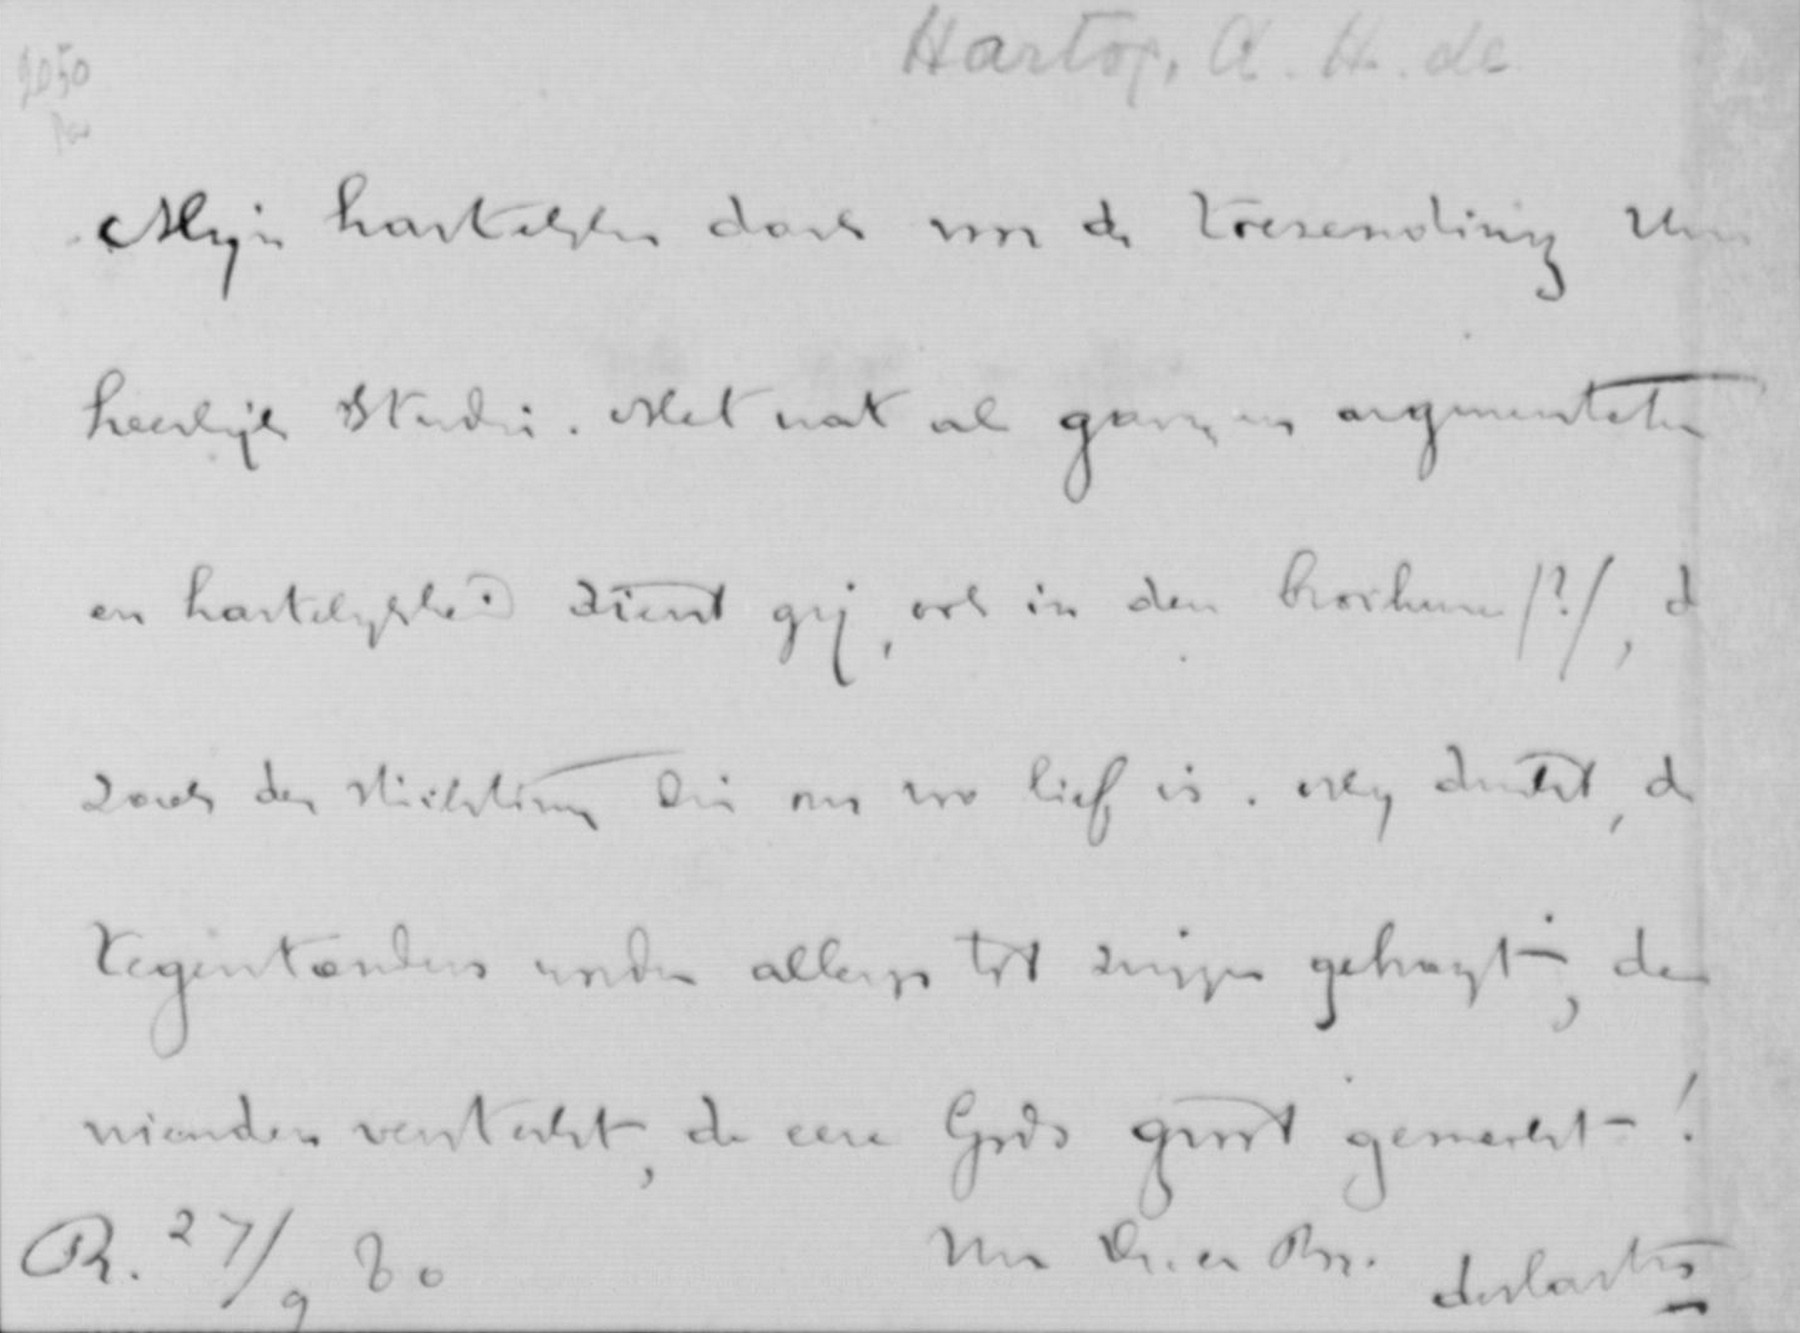 2050
Hartog, A. H. de
Mijn hartelyken dank voor de toezending Uwer
heerlijke Studie. Met wat al gaven en argumenten
en hartelykheid dient gij, ook in den brochure /?/, de
zaak der stichting die ons zoo lief is. My dunkt, de
tegenstanders worden allengs tot zwijgen gebragt, de
vrienden versterkt, de eere Gods groot gemaakt!
R. 27/9 80
Uw Dr. en Br.
deHartog